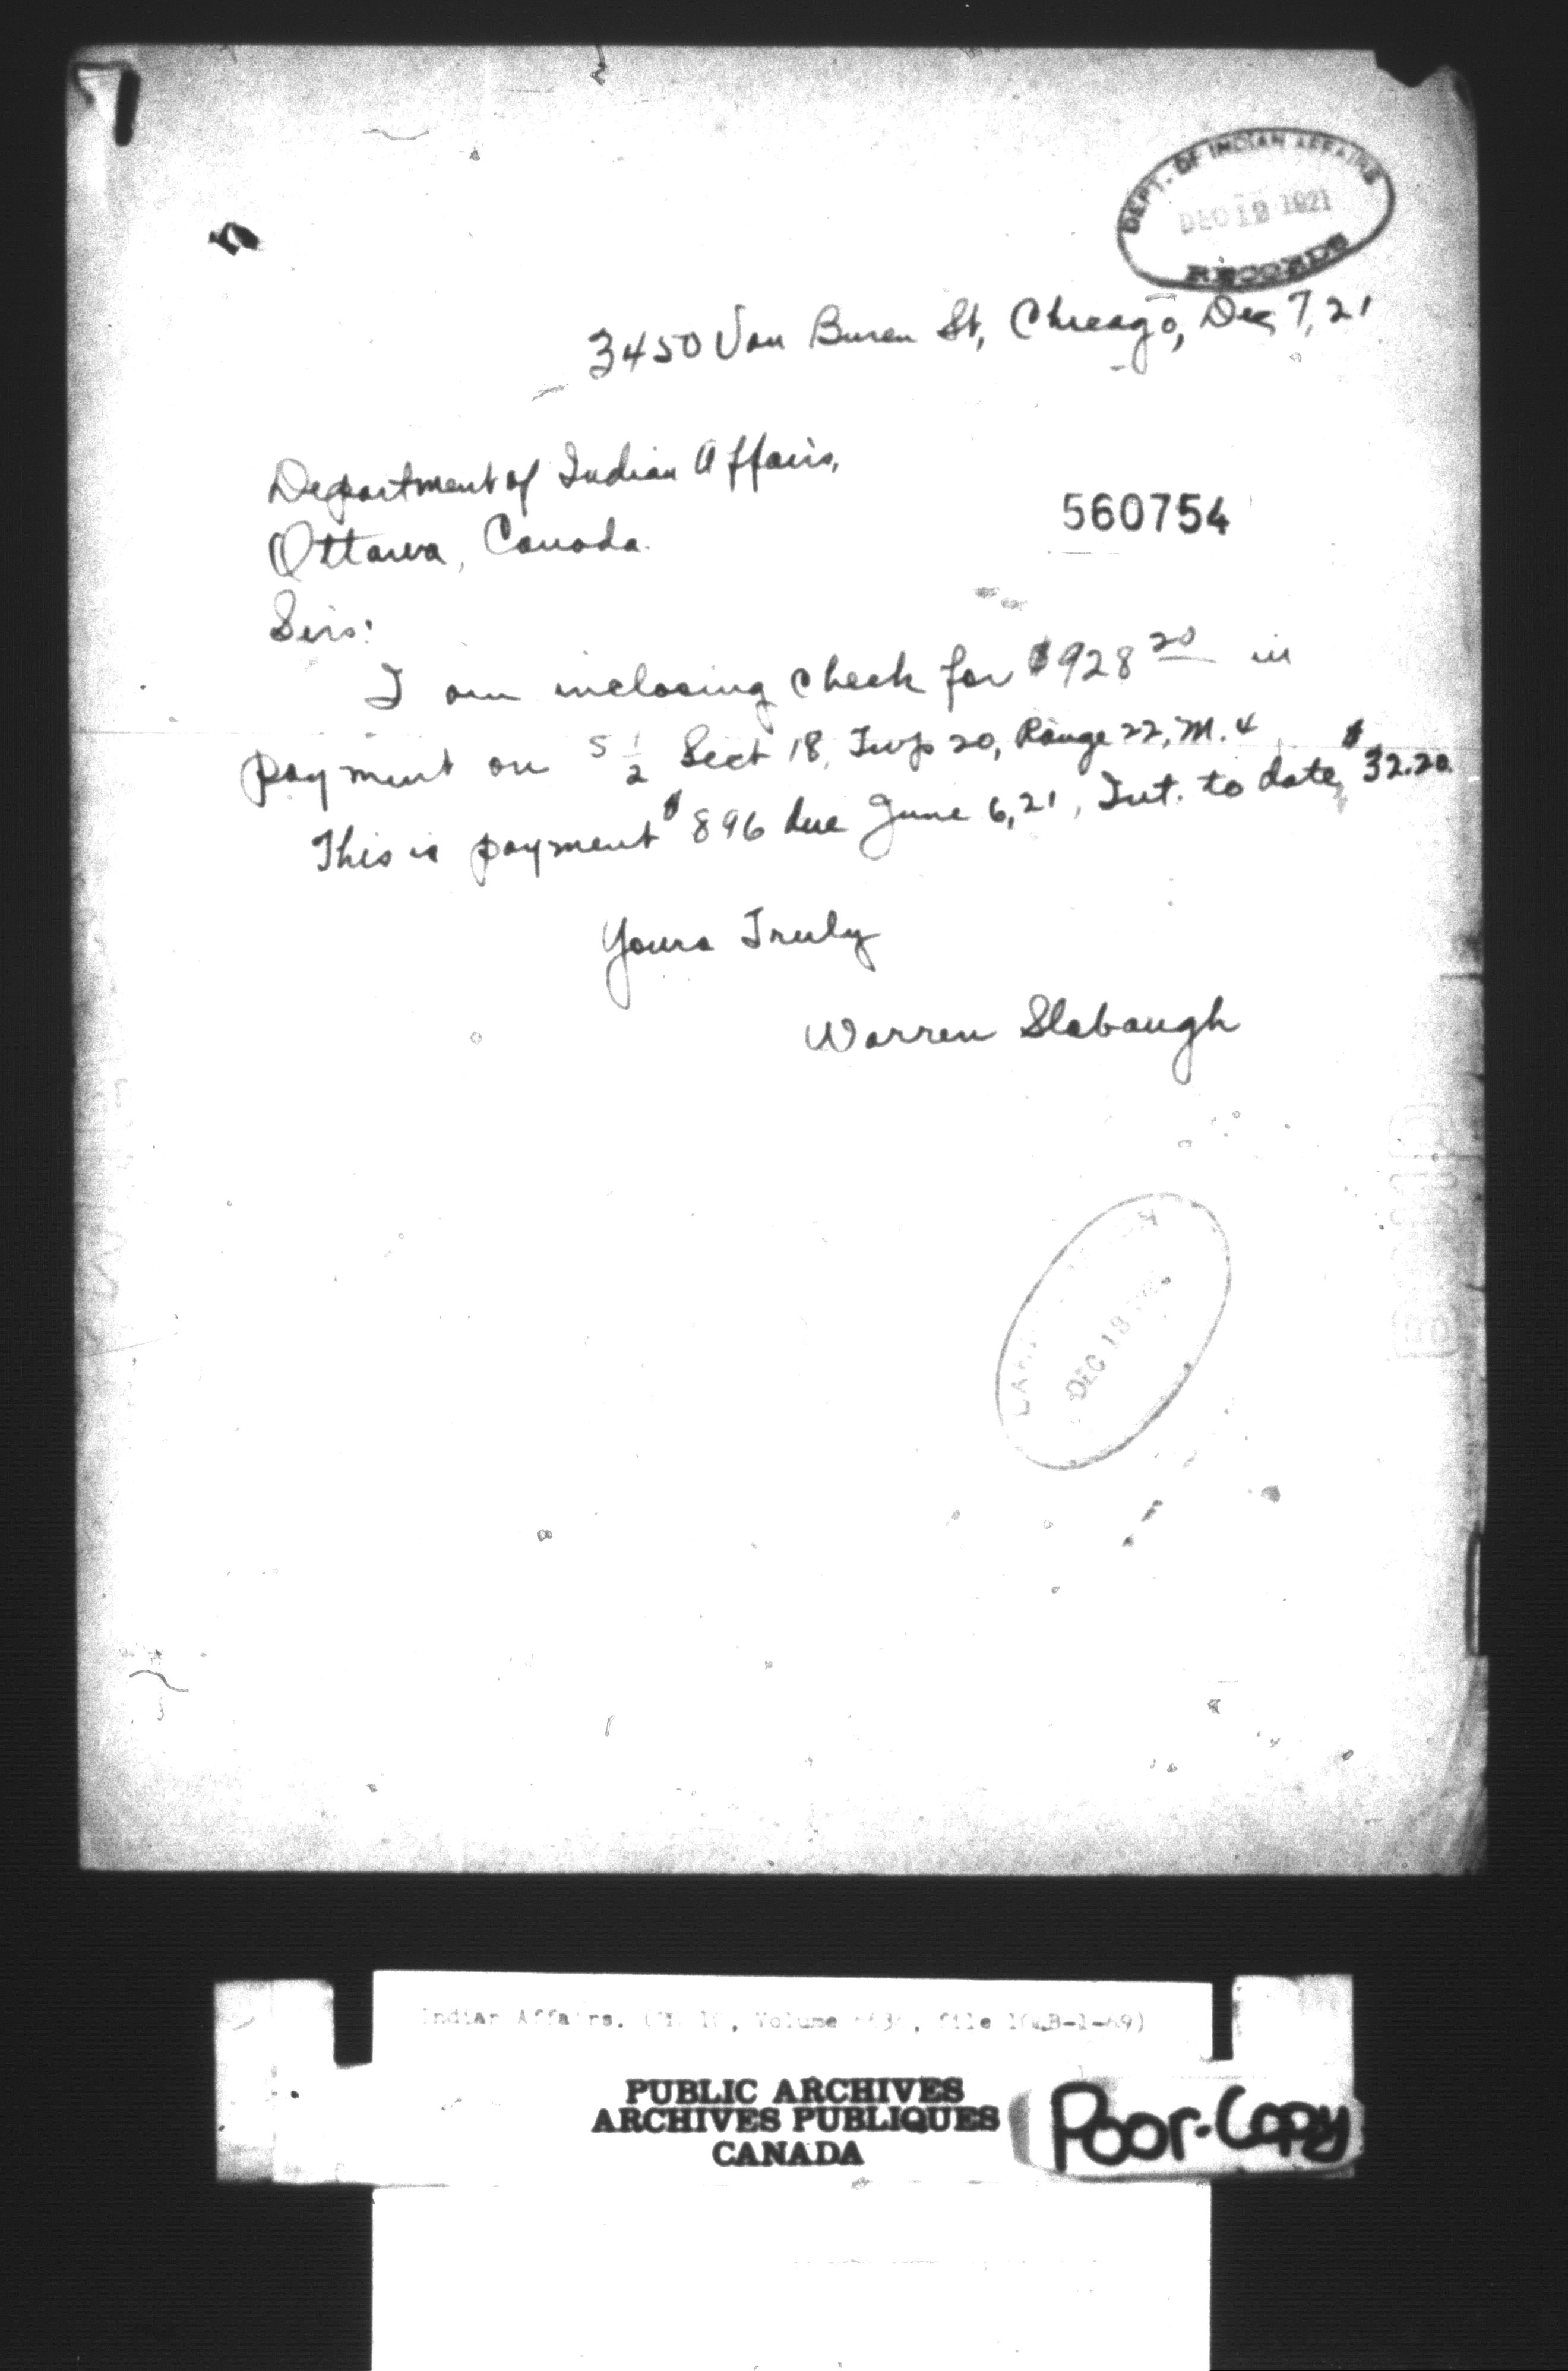 DEPT. OF INDIAN AFFAIRS
DEC 12 1921
RECORDS
3450 Van Buren St, Chicago, Dec 7, 21
Department of Indian Affairs,
560754
Ottawa, Canada.
Sirs:
I am inclosing check for $928 20 in
payment on S 1/2 Sect 18, Twp 20, Range 22, M. 4
This is payment $896 due June 6, 21, Int. to date, $32.20.
Yours Truly
Warren Slabaugh
DEC 13
Indian Affairs. (RG 10, Volume file
PUBLIC ARCHIVES
ARCHIVES PUBLIQUES
CANADA
Poor-Copy